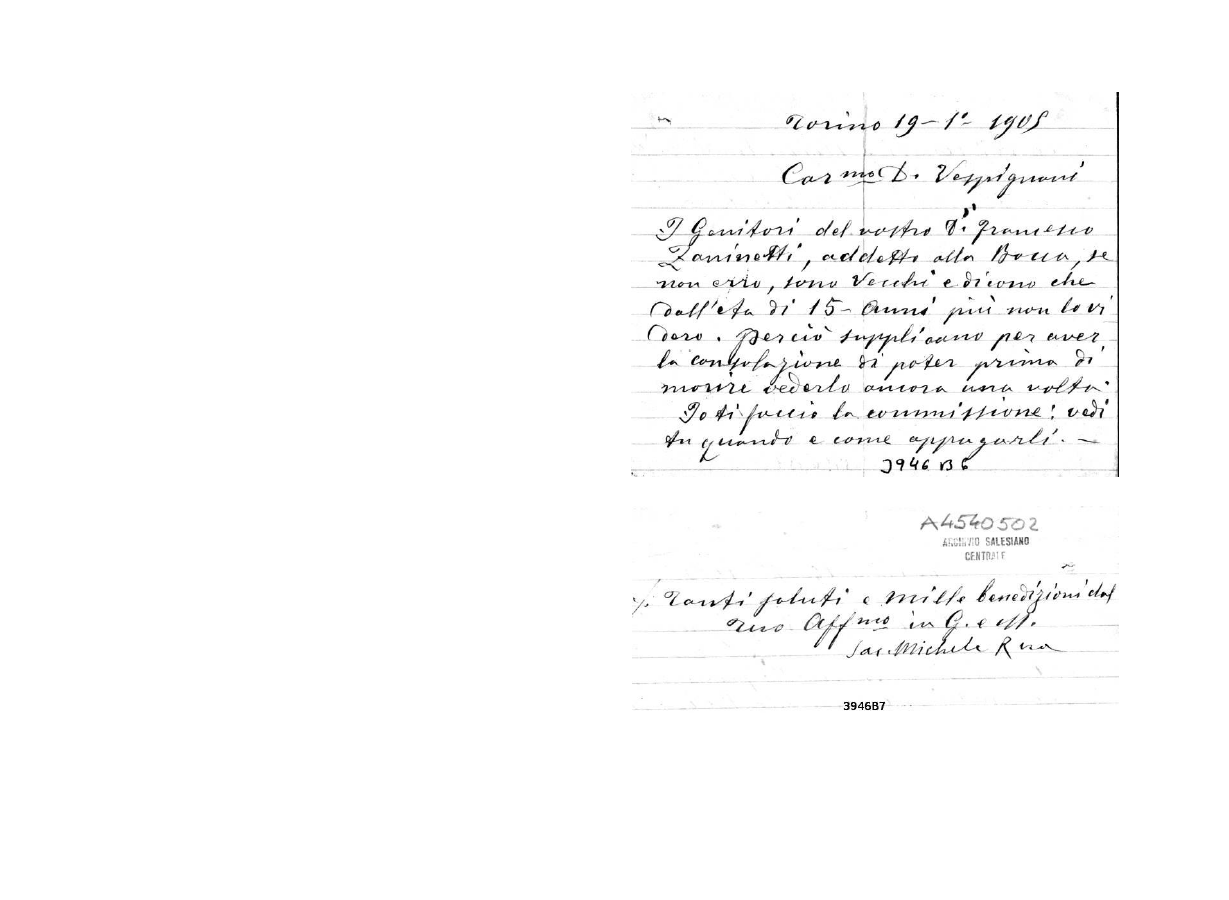 Torino 19-1°- 1905
Car.mo D. Vespignani
I Genitori del vostro D. Francesco
Zaninetti, addetto alla Bocca, se
non erro, sono Vecchi e dicono che
dall'età di 15- Anni più non lo vi
dero. Perciò supplicano per aver
la consolazione di poter prima di
morire vederlo ancora una volta.
Io ti faccio la commissione: vedi
tu quando e come appagarli. —
3946 B6
A4540502
ARCHIVIO SALESIANO
CENTRALE
Tanti saluti e mille benedizioni dal
Tuo Aff.mo in G. e M.
Sac. Michele Rua
3946B7